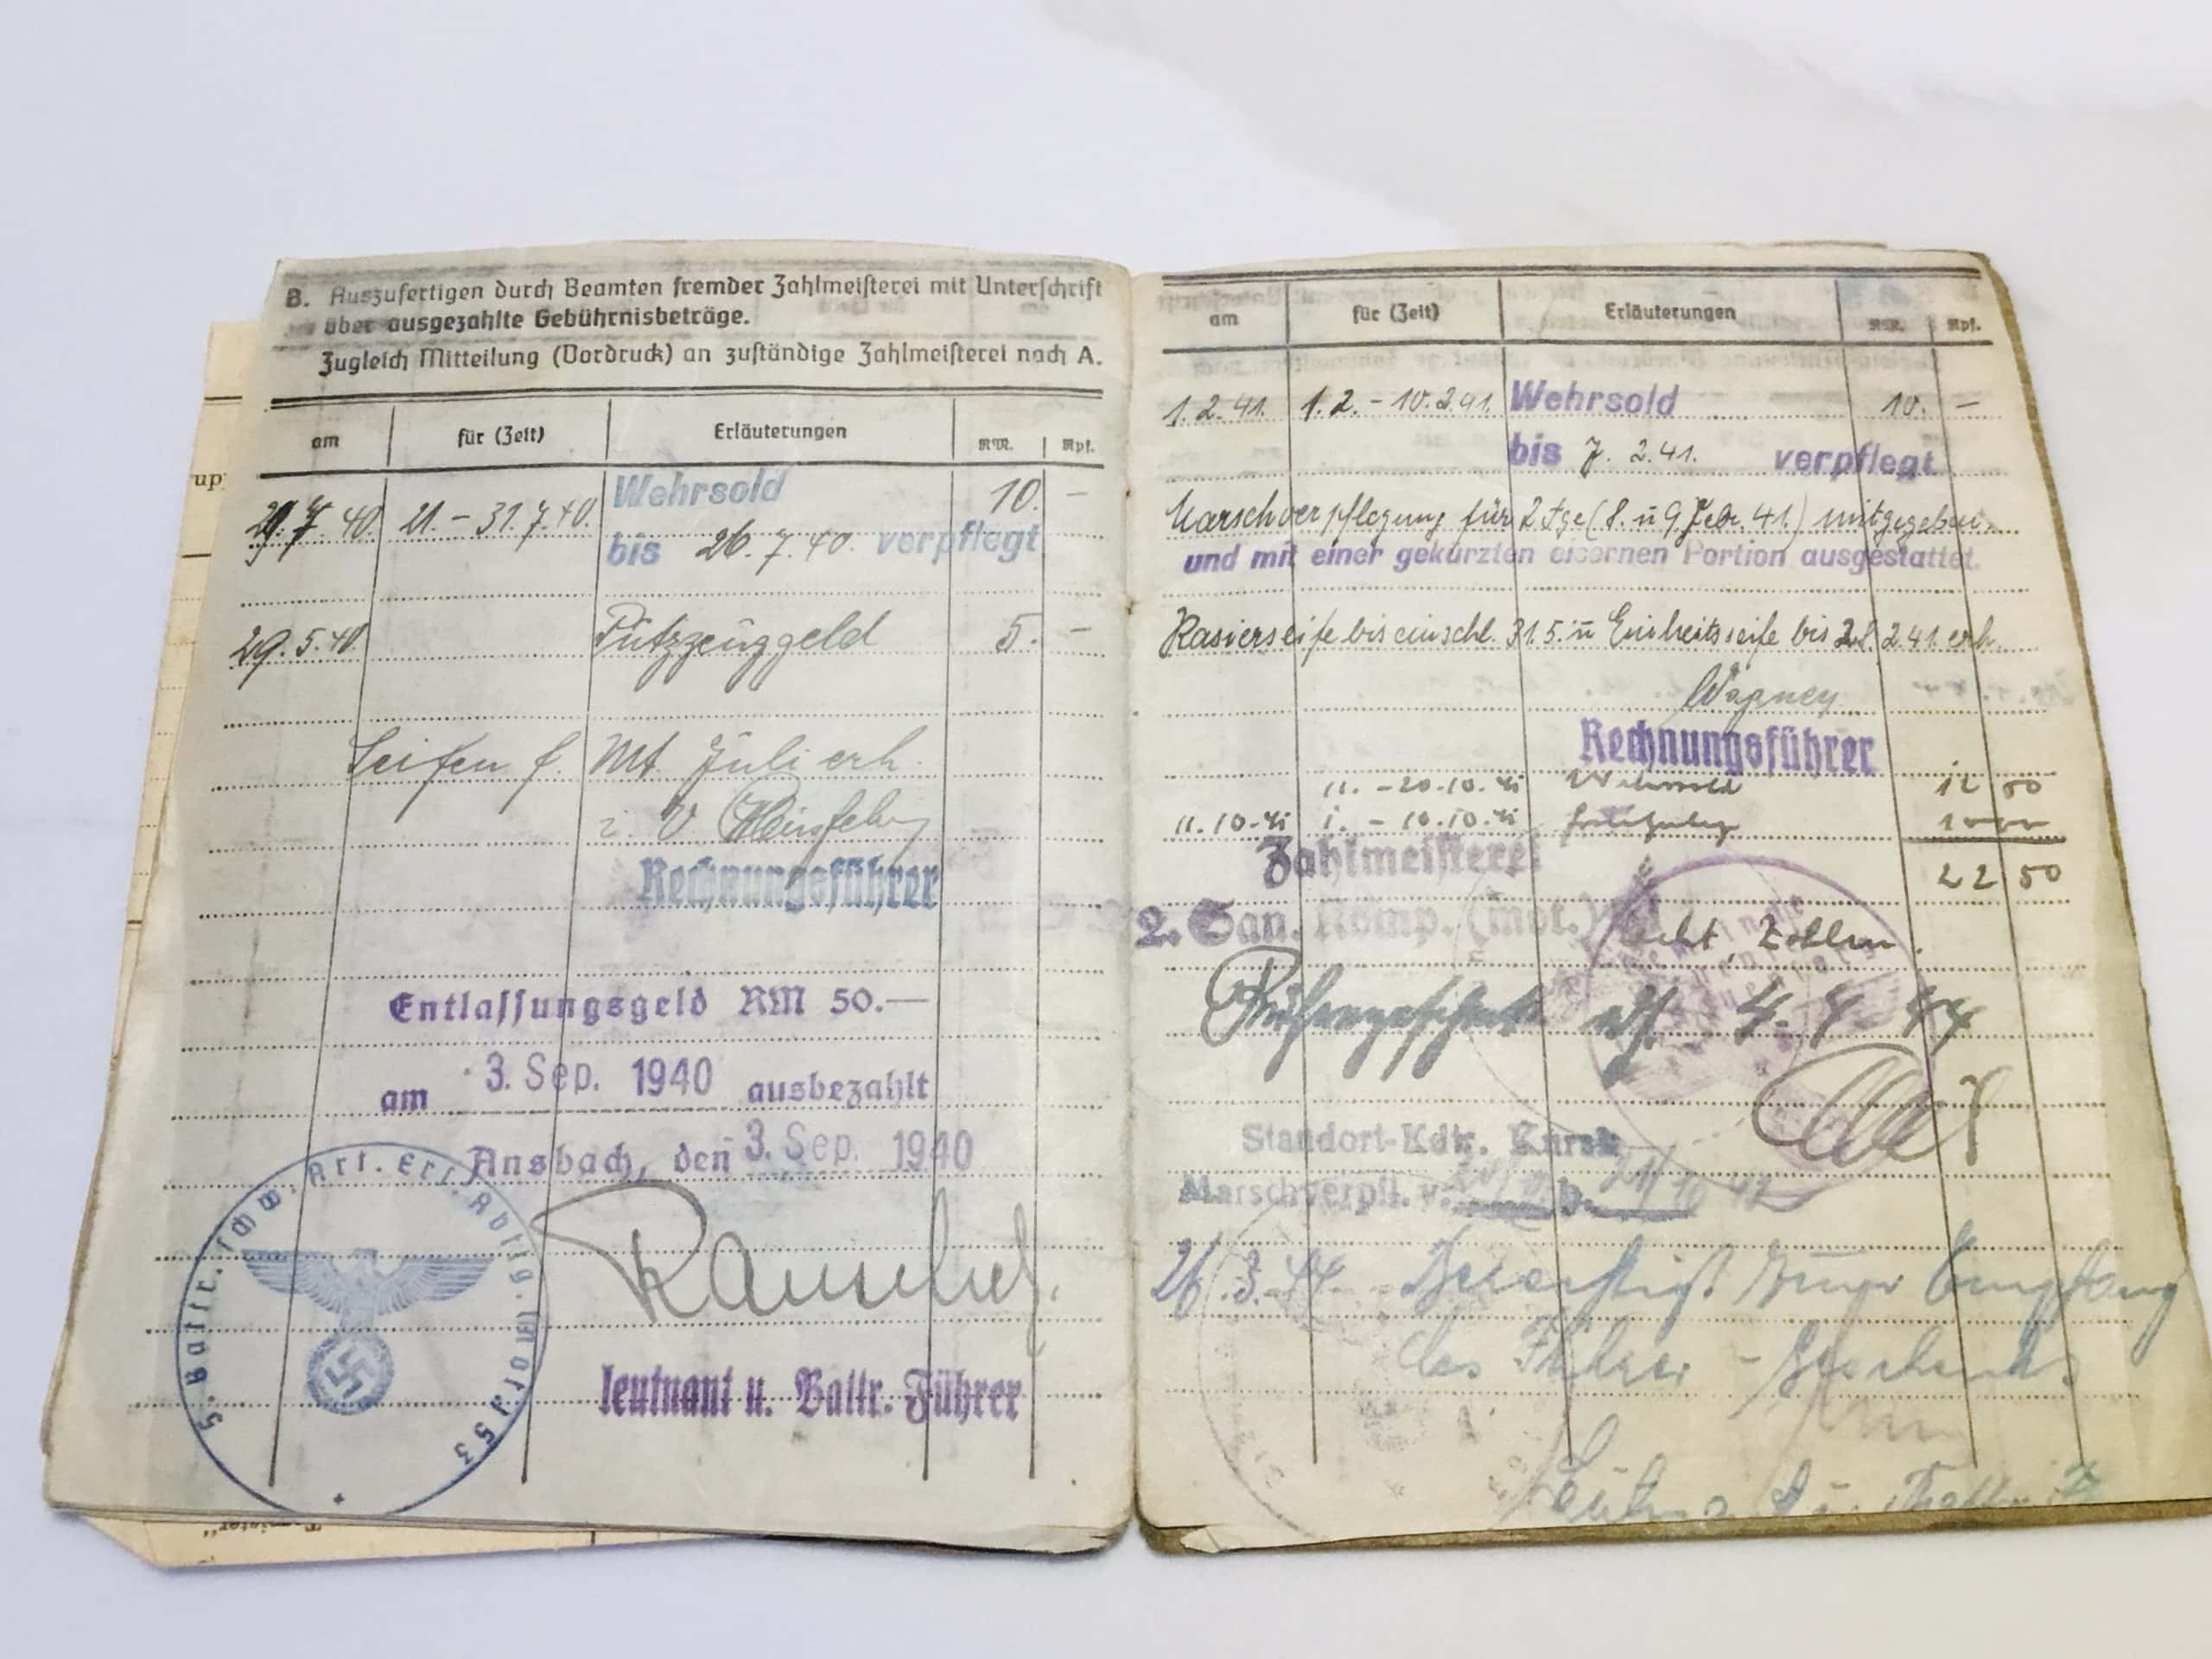 B. Auszufertigen durch Beamten fremder Zahlmeisterei mit Unterschrift
über ausgezahlte Gebührnisbeträge.
Zugleich Mitteilung (Vordruck) an zuständige Zahlmeisterei nach A.
am für (Zeit) Erläuterungen RM. Rpf.
Wehrsold 10. –
21. 7. 40. 21. – 31. 7. 40.
bis 26. 7. 40. verpflegt
29. 5. 40. Putzzeuggeld 5. –
Seifen f. Mt. Juli erh.
i. V.
Rechnungsführer
Entlassungsgeld RM 50.—
am 3. Sep. 1940 ausbezahlt
Ansbach, den 3. Sep. 1940
5. Battr. schw. Art. Ers. Abtlg. (mot.) 53
Leutnant u. Battr. Führer
am für (Zeit) Erläuterungen RM. Rpf.
1. 2. 41. 1. 2. – 10. 2. 41. Wehrsold 10. –
bis 7. 2. 41. verpflegt
Marschverpflegung für 2 Tge (8. u 9. Febr. 41.) mitgegeben
und mit einer gekürzten eisernen Portion ausgestattet.
Rasierseife bis einschl. 31. 5. u Einheitsseife bis 2. 41. erh.
Wagner
Rechnungsführer
11. – 20. 10. 41 Wehrsold 12 50
11. 10. 41 1. – 10. 10. 41 10
22 50
Zahlmeisterei
2. San. Komp. (mot.)
4. 4. 44
Standort-Kdtr. Kursk
Marschverpfl. v. b.
26. 3. 44. Berechtigt zum Empfang
des Führer – Geschenks